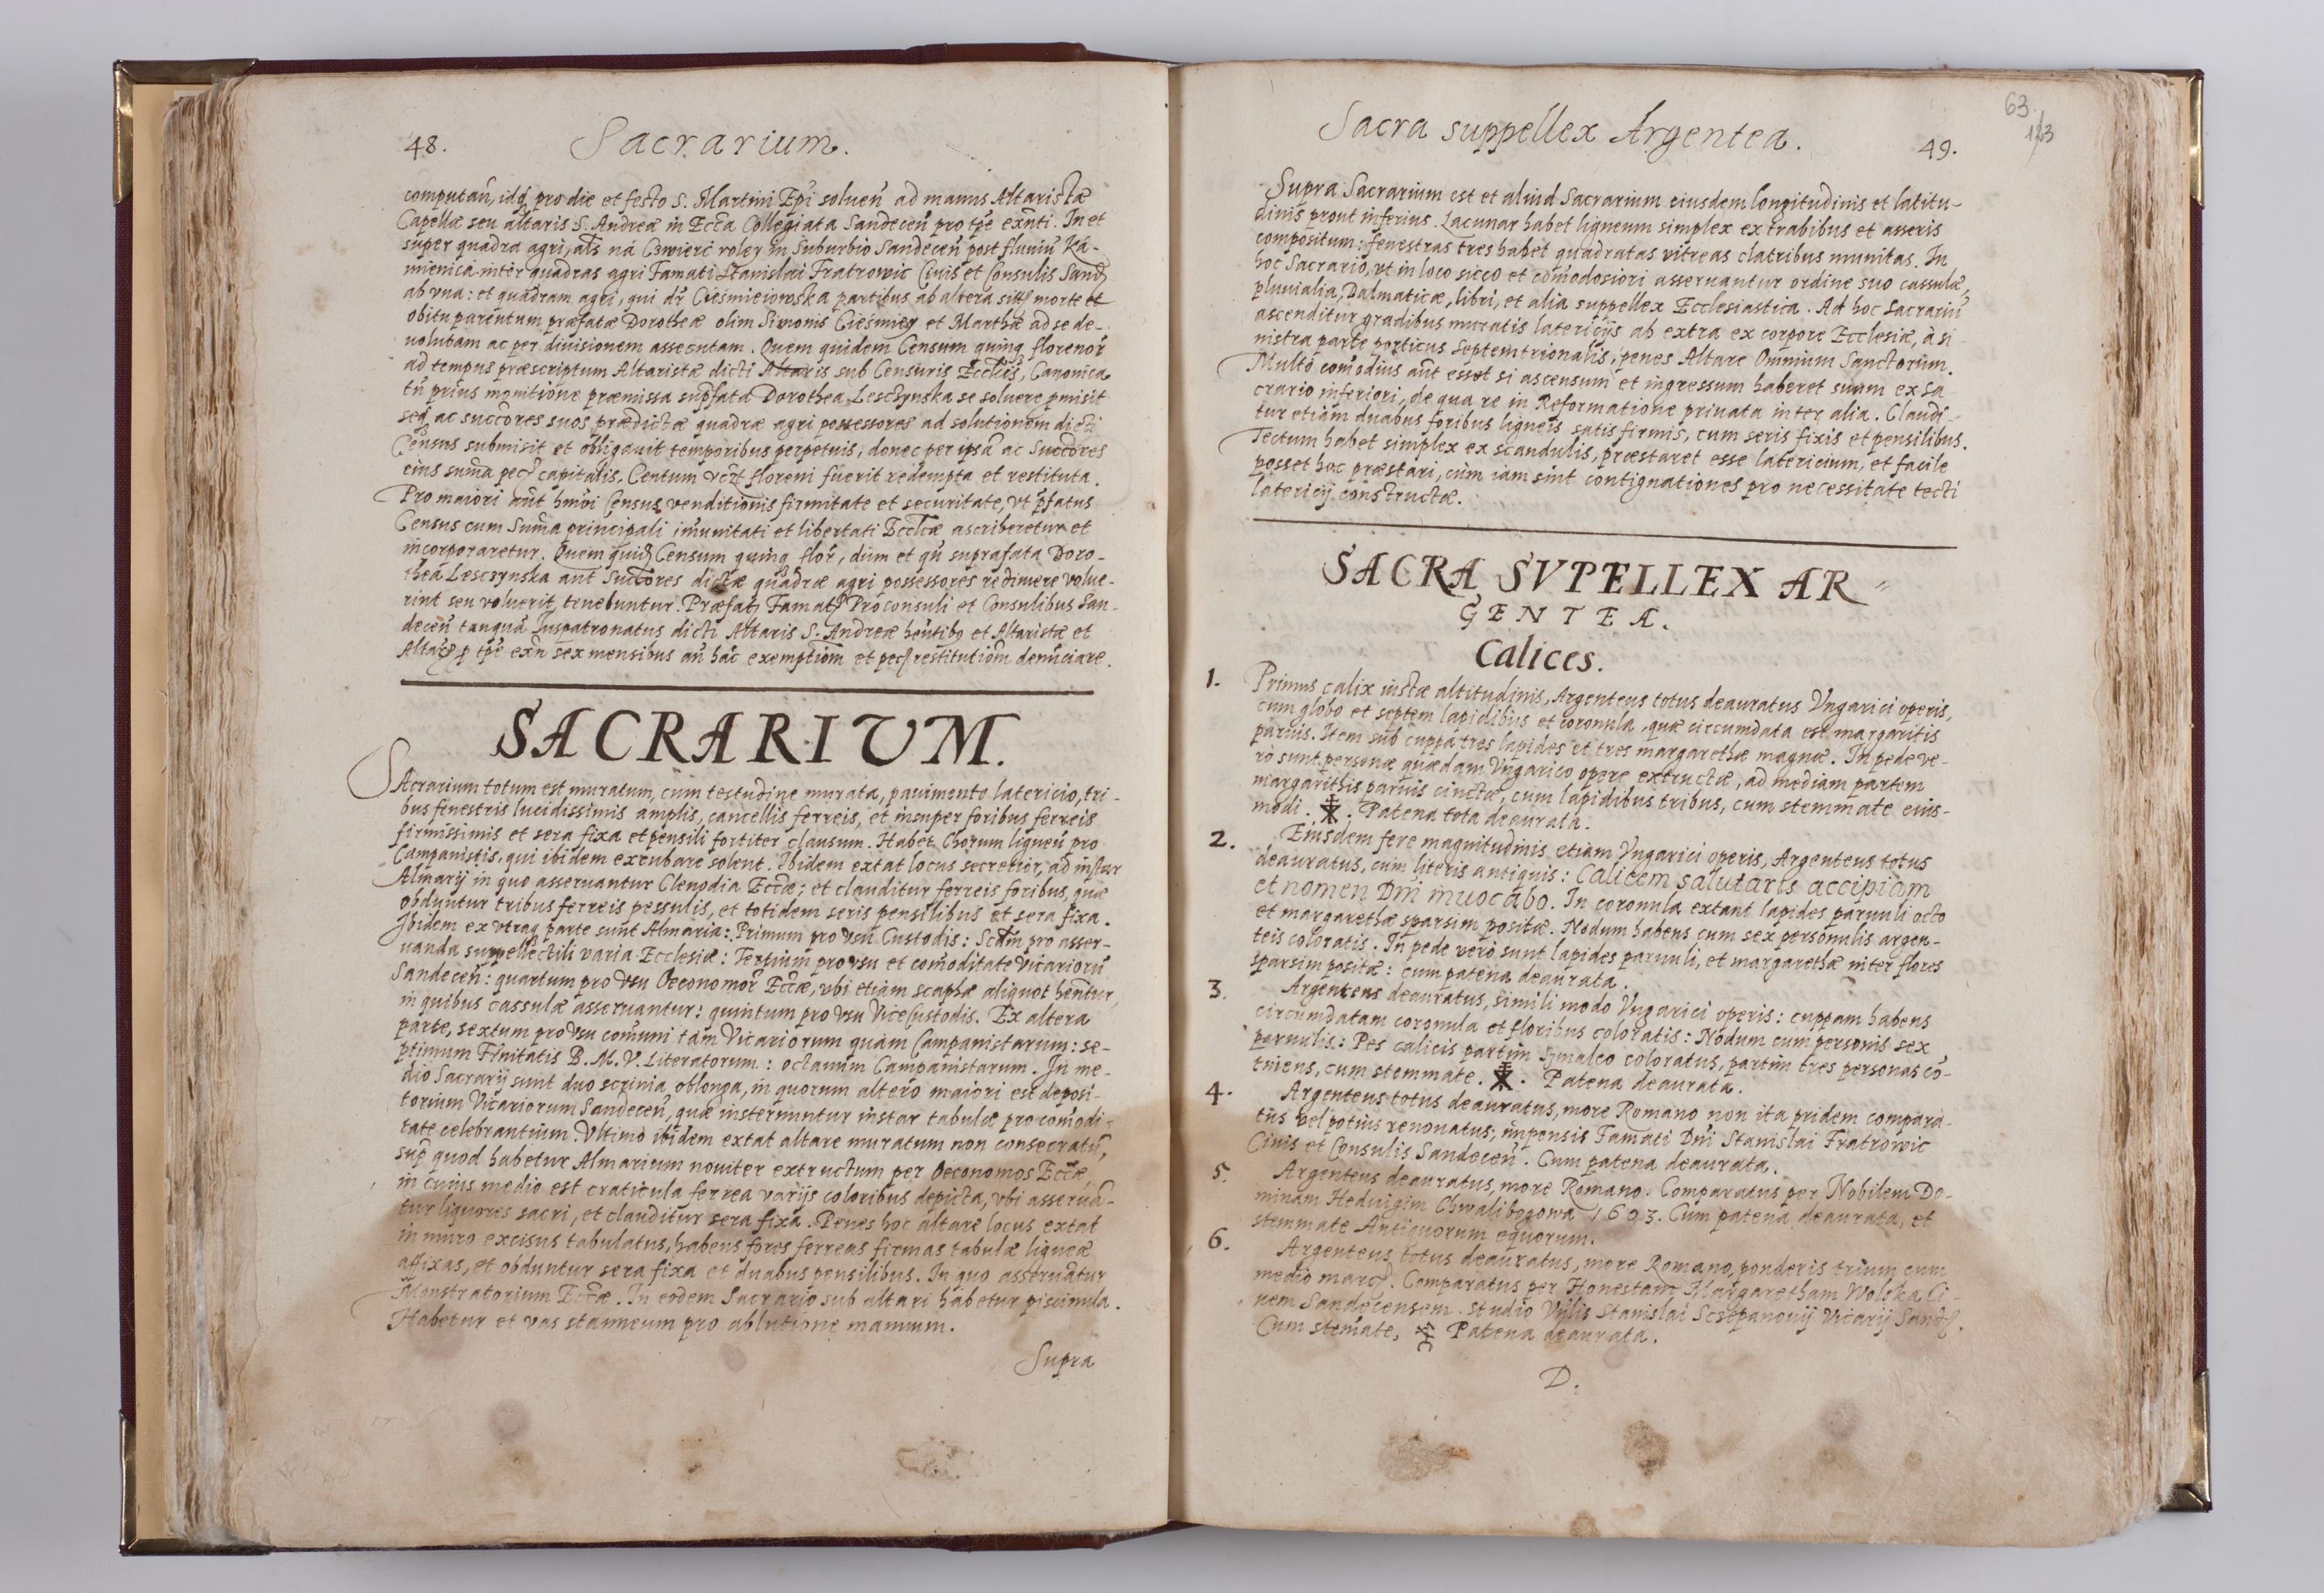 48.
Sacrarium.
computan̄, idq̃ pro die et festo S. Martini Ep̄i soluen̄ ad manus Altaristæ
Capellæ seu altaris S. Andreæ in Eccľa Collegiata Sandecen̄ pro tp̄e exn̄ti. In et
super quadra agri, al̄s ná Cżwierć roley in Suburbio Sandecen̄ post fluuiū Ka-
mienica inter quadras agri Famati Stanislai Fratrowic Ciuis et Consulis Sand̄
ab vna: et quadram agri, qui dr̄ Cieśmieiowska partibus ab altera sitt morte et
obitu parentum præfatæ Dorotheæ olim Simonis Cieśmiey et Marthæ ad se de-
uolutam ac per diuisionem assecutam. Quem quidem Censum quinq florenor̄
ad tempus præscriptum Altaristæ dicti Altaris sub Censuris Ecclīs, Canonica
tn̄ prius monitione præmissa supfata Dorothea Lescżynska se soluere pmisit
seq̃ ac succores suos prædictæ quadræ agri possessores ad solutionem dicti
Census submisit et obligauit temporibus perpetuis, donec per ipsā ac Succores
eius sum̄a pec̄ capitalis, Centum vczt floreni fuerit redempta et restituta.
Pro maiori aūt hm̄oi Census venditionis firmitate et securitate, vt p̄fatus
Census cum Sum̄a principali im̄unitati et libertati Eccľiæ ascriberetur et
incorporaretur. Quem quid̄ Censum quinq flor̄, dum et qn̄ suprafata Doro-
thea Lescżynska aut Succores dictæ quadræ agri possessores redimere volue-
rint seu voluerit, tenebuntur. Præfat̄ Famat̄ Proconsuli et Consulibus San-
decen̄ tanquā Iuspatronatus dicti Altaris S. Andreæ hen̄tibo et Altaristæ et
p tp̄e exn̄ sex mensibus an̄ hāc exemptiōm et pec̄ restitutiōm denūciare.
SACRARIUM.
SAcrarium totum est muratum, cum testudine murata, pauimento latericio, tri-
bus fenestris lucidissimis amplis, cancellis ferreis, et insuper foribus ferreis
firmissimis et sera fixa et pensili fortiter clausum. Habet Chorum ligneū pro
Campanistis, qui ibidem excubare solent. Ibidem extat locus secretior, ad instar
Almarij in quo asseruantur Clenodia Eccľæ; et clauditur ferreis foribus, quæ
obduntur tribus ferreis pessulis, et totidem seris pensilibus et sera fixa.
Ibidem ex vtraq parte sunt Almaria: Primum pro vsu Custodis: Scdm̄ pro asser-
uanda suppellectili varia Ecclesiæ: Tertium pro vsu et com̄oditate Vicariorū
Sandecen̄: quartum pro vsu Oeconomor̄ Eccľæ, vbi etiam scaphæ aliquot hentur,
in quibus cassulæ asseruantur: quintum pro vsu ViceCustodis. Ex altera
parte, sextum pro vsu com̄uni tàm Vicariorum quàm Campanistarum: se-
ptimum Fr̄nitatis B. M. V. Literatorum: octauum Campanistarum. In me-
dio Sacrarij sunt duo scrinia oblonga, in quorum altero maiori est deposi-
torium Vicariorum Sandecen̄, quæ insternuntur instar tabulæ pro com̄odi-
tate celebrantium. Vltimò ibidem extat altare muratum non consecratū,
sup̄ quod habetur Almarium nouiter extructum per Oeconomos Eccľæ,
in cuius medio est craticula ferrea varijs coloribus depicta, vbi asseruā-
tur liquores sacri, et clauditur sera fixa. Penes hoc altare locus extat
in muro excisus tabulatus, habens fores ferreas firmas tabulæ ligneæ
affixas, et obduntur sera fixa et duabus pensilibus. In quo asseruātur
Monstratorium Eccľæ. In eodem Sacrario sub altari habetur piscinula.
Habetur et vas stanneum pro ablutione manuum.
Supra
63
123
Sacra suppellex Argentea.
49.
Supra Sacrarium est et aliud Sacrarium eiusdem longitudinis et latitu-
dinis prout inferius. Lacunar habet ligneum simplex ex trabibus et asseris
compositum: fenestras tres habet quadratas vitreas clatribus munitas. In
hoc Sacrario, vt in loco sicco et com̄odosiori asseruantur ordine suo cassulæ,
pluuialia, Dalmaticæ, libri, et alia suppellex Ecclesiastica. Ad hoc Sacrariū
ascenditur gradibus muratis latericijs ab extra ex corpore Ecclesiæ, à si-
nistra parte porticus septemtrionalis, penes Altare Omnium Sanctorum.
Multò com̄odius aūt esset si ascensum et ingressum haberet suum ex Sa
crario inferiori, de qua re in Reformatione priuata inter alia. Claudi-
tur etiam duabus foribus ligneis satis firmis, cum seris fixis et pensilibus.
Tectum habet simplex ex scandulis, præstaret esse latericium, et facile
posset hoc præstari, cùm iam sint contignationes pro necessitate tecti
latericij constructæ.
SACRA SVPELLEX AR=
GENTEA.
Calices.
1. Primus calix iustæ altitudinis, Argenteus totus deauratus Vngarici operis,
cum globo et septem lapidibus et coronula, quæ circumdata est margaritis
paruis. Item sub cuppa tres lapides et tres margarethæ magnæ. In pede ve-
rò sunt personæ quædam Vngarico opere extructæ, ad mediam partem
margarithis paruis cinctæ, cum lapidibus tribus, cum stemmate eius-
modi. Patena tota deaurata.
2. Eiusdem fere magnitudinis etiam Vngarici operis, Argenteus totus
deauratus, cum literis antiquis: Calicem salutaris accipiam
et nomen Dn̄i inuocabo. In coronula extant lapides paruuli octo
et margarethæ sparsim positæ. Nodum habens cum sex personulis argen-
teis coloratis. In pede verò sunt lapides paruuli, et margarethæ inter flores
sparsim positæ: cum patena deaurata.
3. Argenteus deauratus, simili modo Vngarici operis: cuppam habens
circumdatam coronula et floribus coloratis: Nodum cum personis sex
paruulis: Pes calicis partim synalco coloratus, partim tres personas cō-
tinens, cum stemmate. Patena deaurata.
4. Argenteus totus deauratus, more Romano non ita pridem compara-
tus vel potius renouatus, impensis Famati Dn̄i Stanislai Fratrowic
Ciuis et Consulis Sandecen̄. Cum patena deaurata.
5. Argenteus deauratus, more Romano. Comparatus per Nobilem Do-
minam Heduigim Chwalibogowa 1603. Cum patena deaurata, et
stemmate Antiquorum equorum.
6. Argenteus totus deauratus, more Romano, ponderis trium cum
medio marc̄. Comparatus per Honestam Margaretham Wolska Ci-
uem Sandecensem. studio Vn̄lis Stanislai Scżepanouij Vicarij Sand̄.
Cum stem̄ate, Patena deaurata.
D.